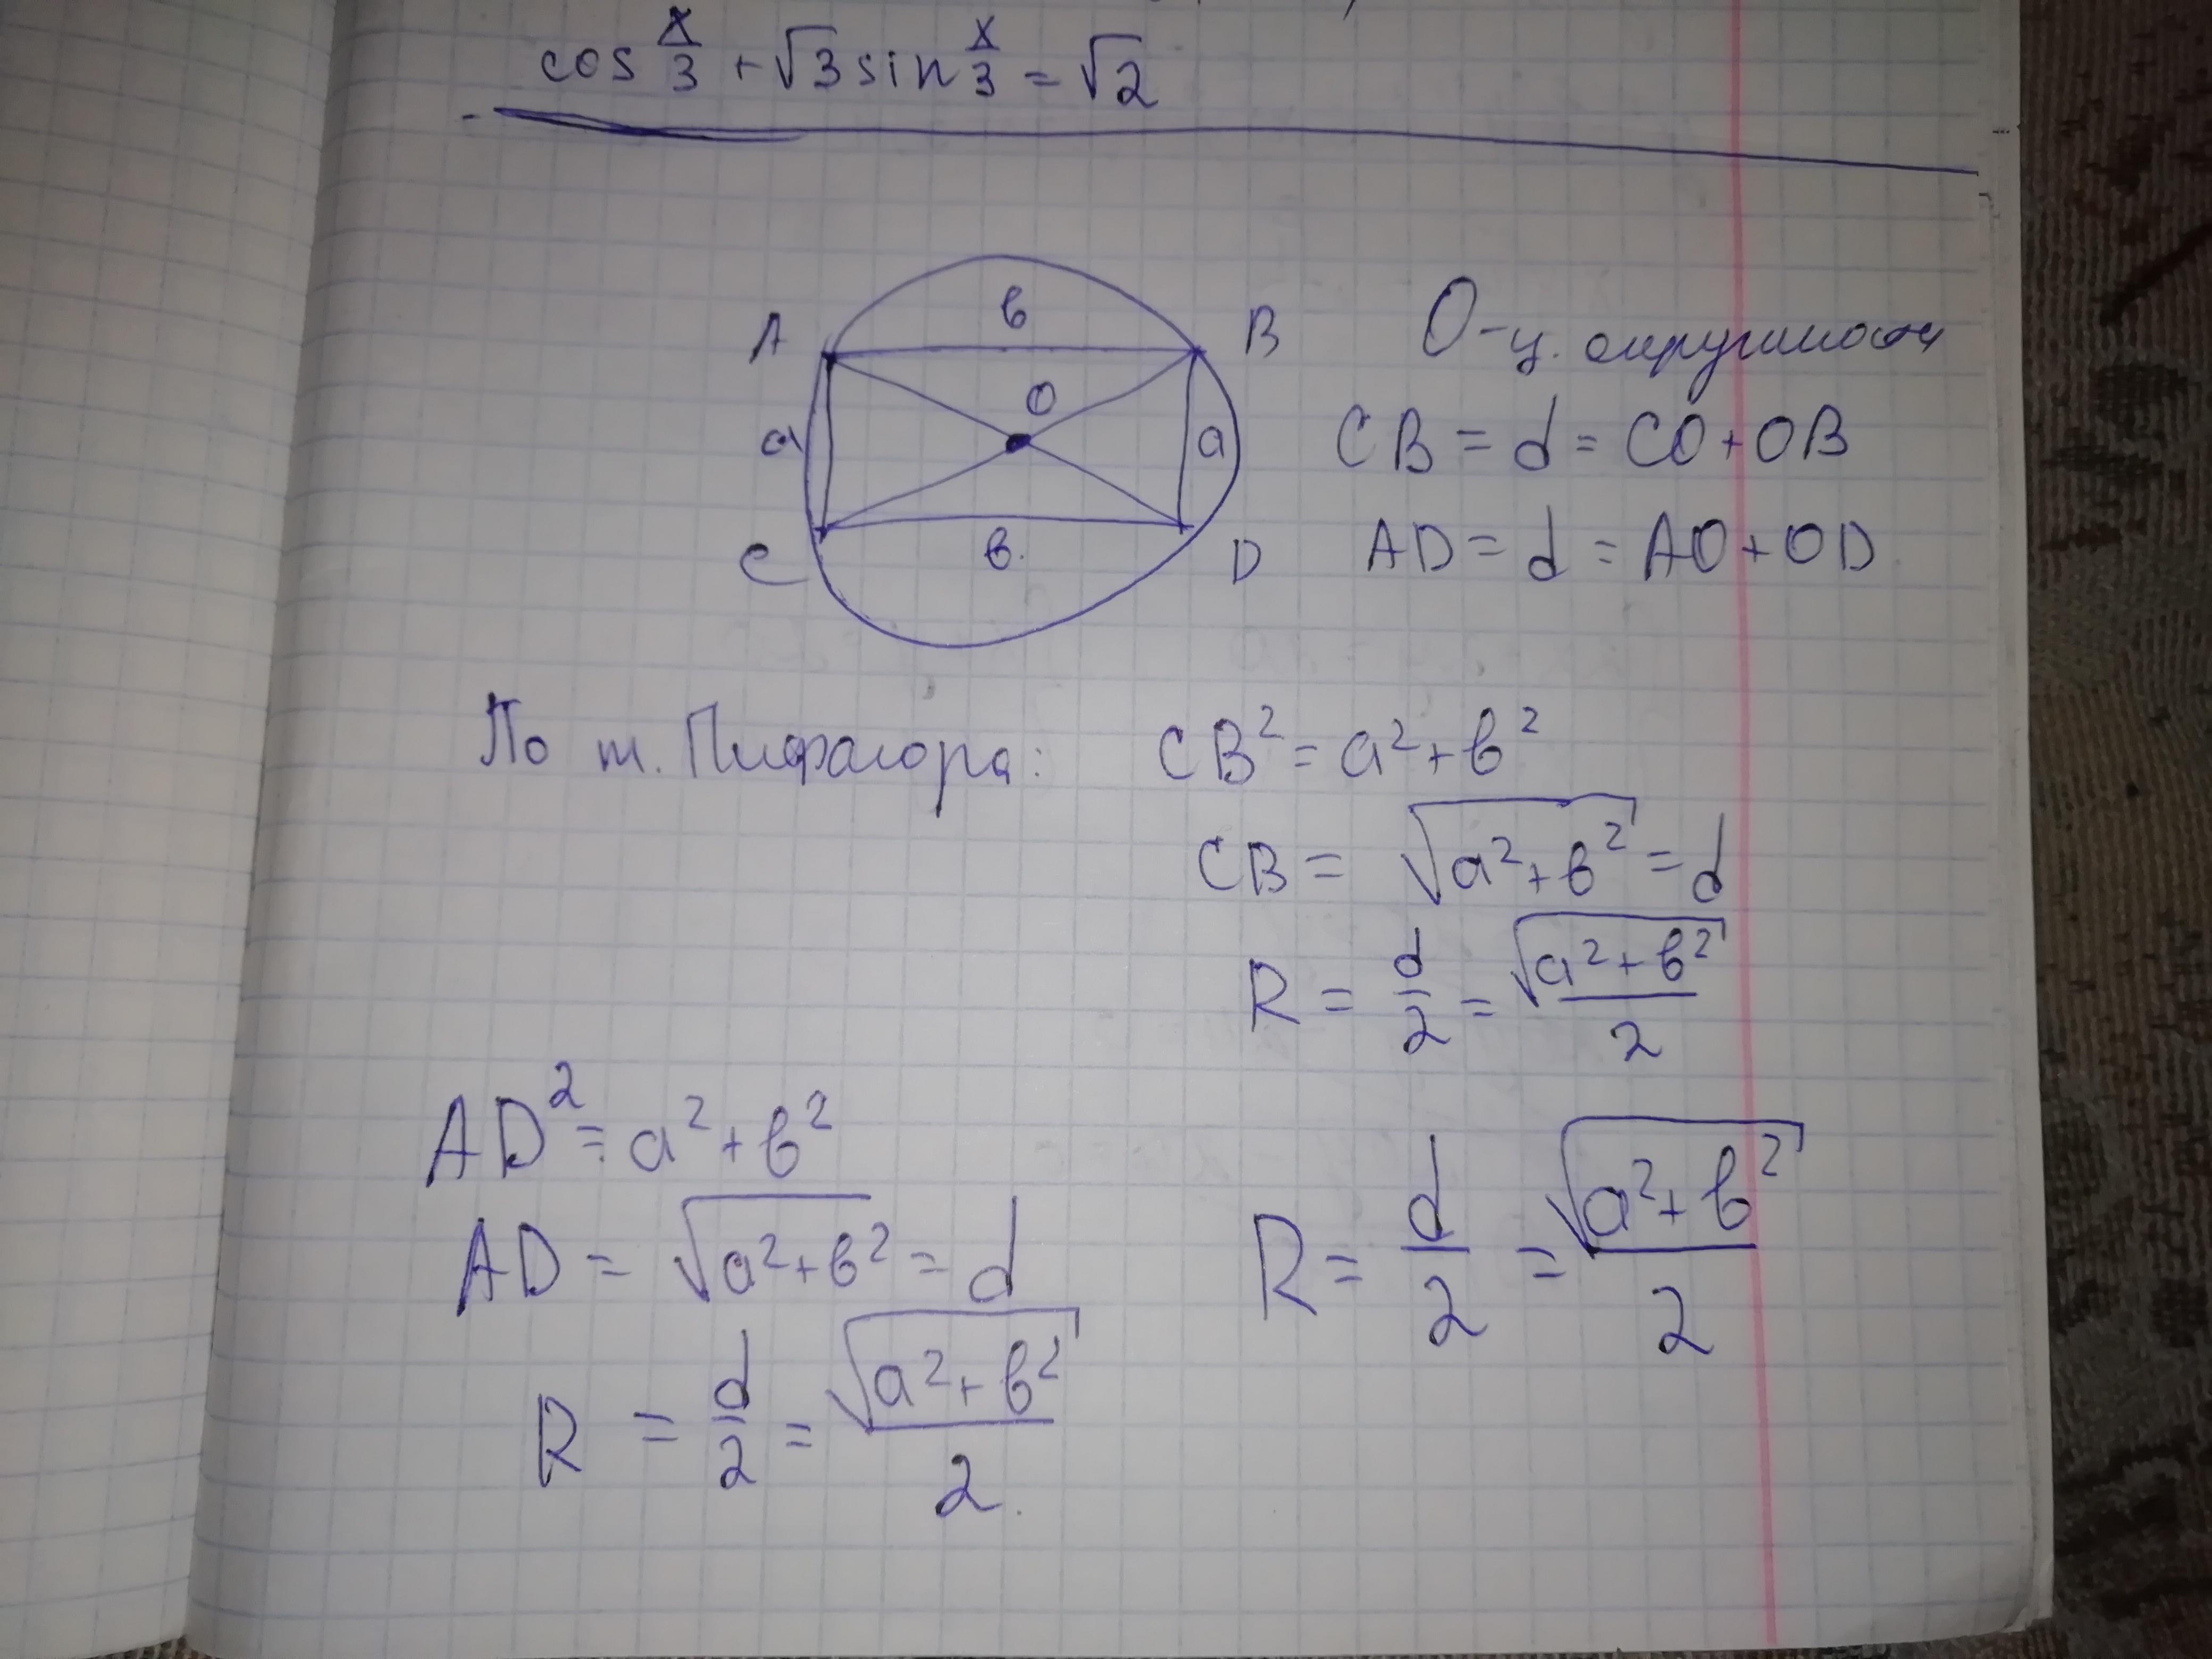 cos x/3 + √3 sin x/3 = √2
в
A
B
О-ц. окружности
O
a
a
CB = d = CO + OB
AD = d = AO + OD
C
в.
D
По т. Пифагора: CB² = a² + в²
CB = √(a² + в²) = d
R = d/2 = √(a² + в²)/2
AD² = a² + в²
AD = √(a² + в²) = d
R = d/2 = √(a² + в²)/2
R = d/2 = √(a² + в²)/2.